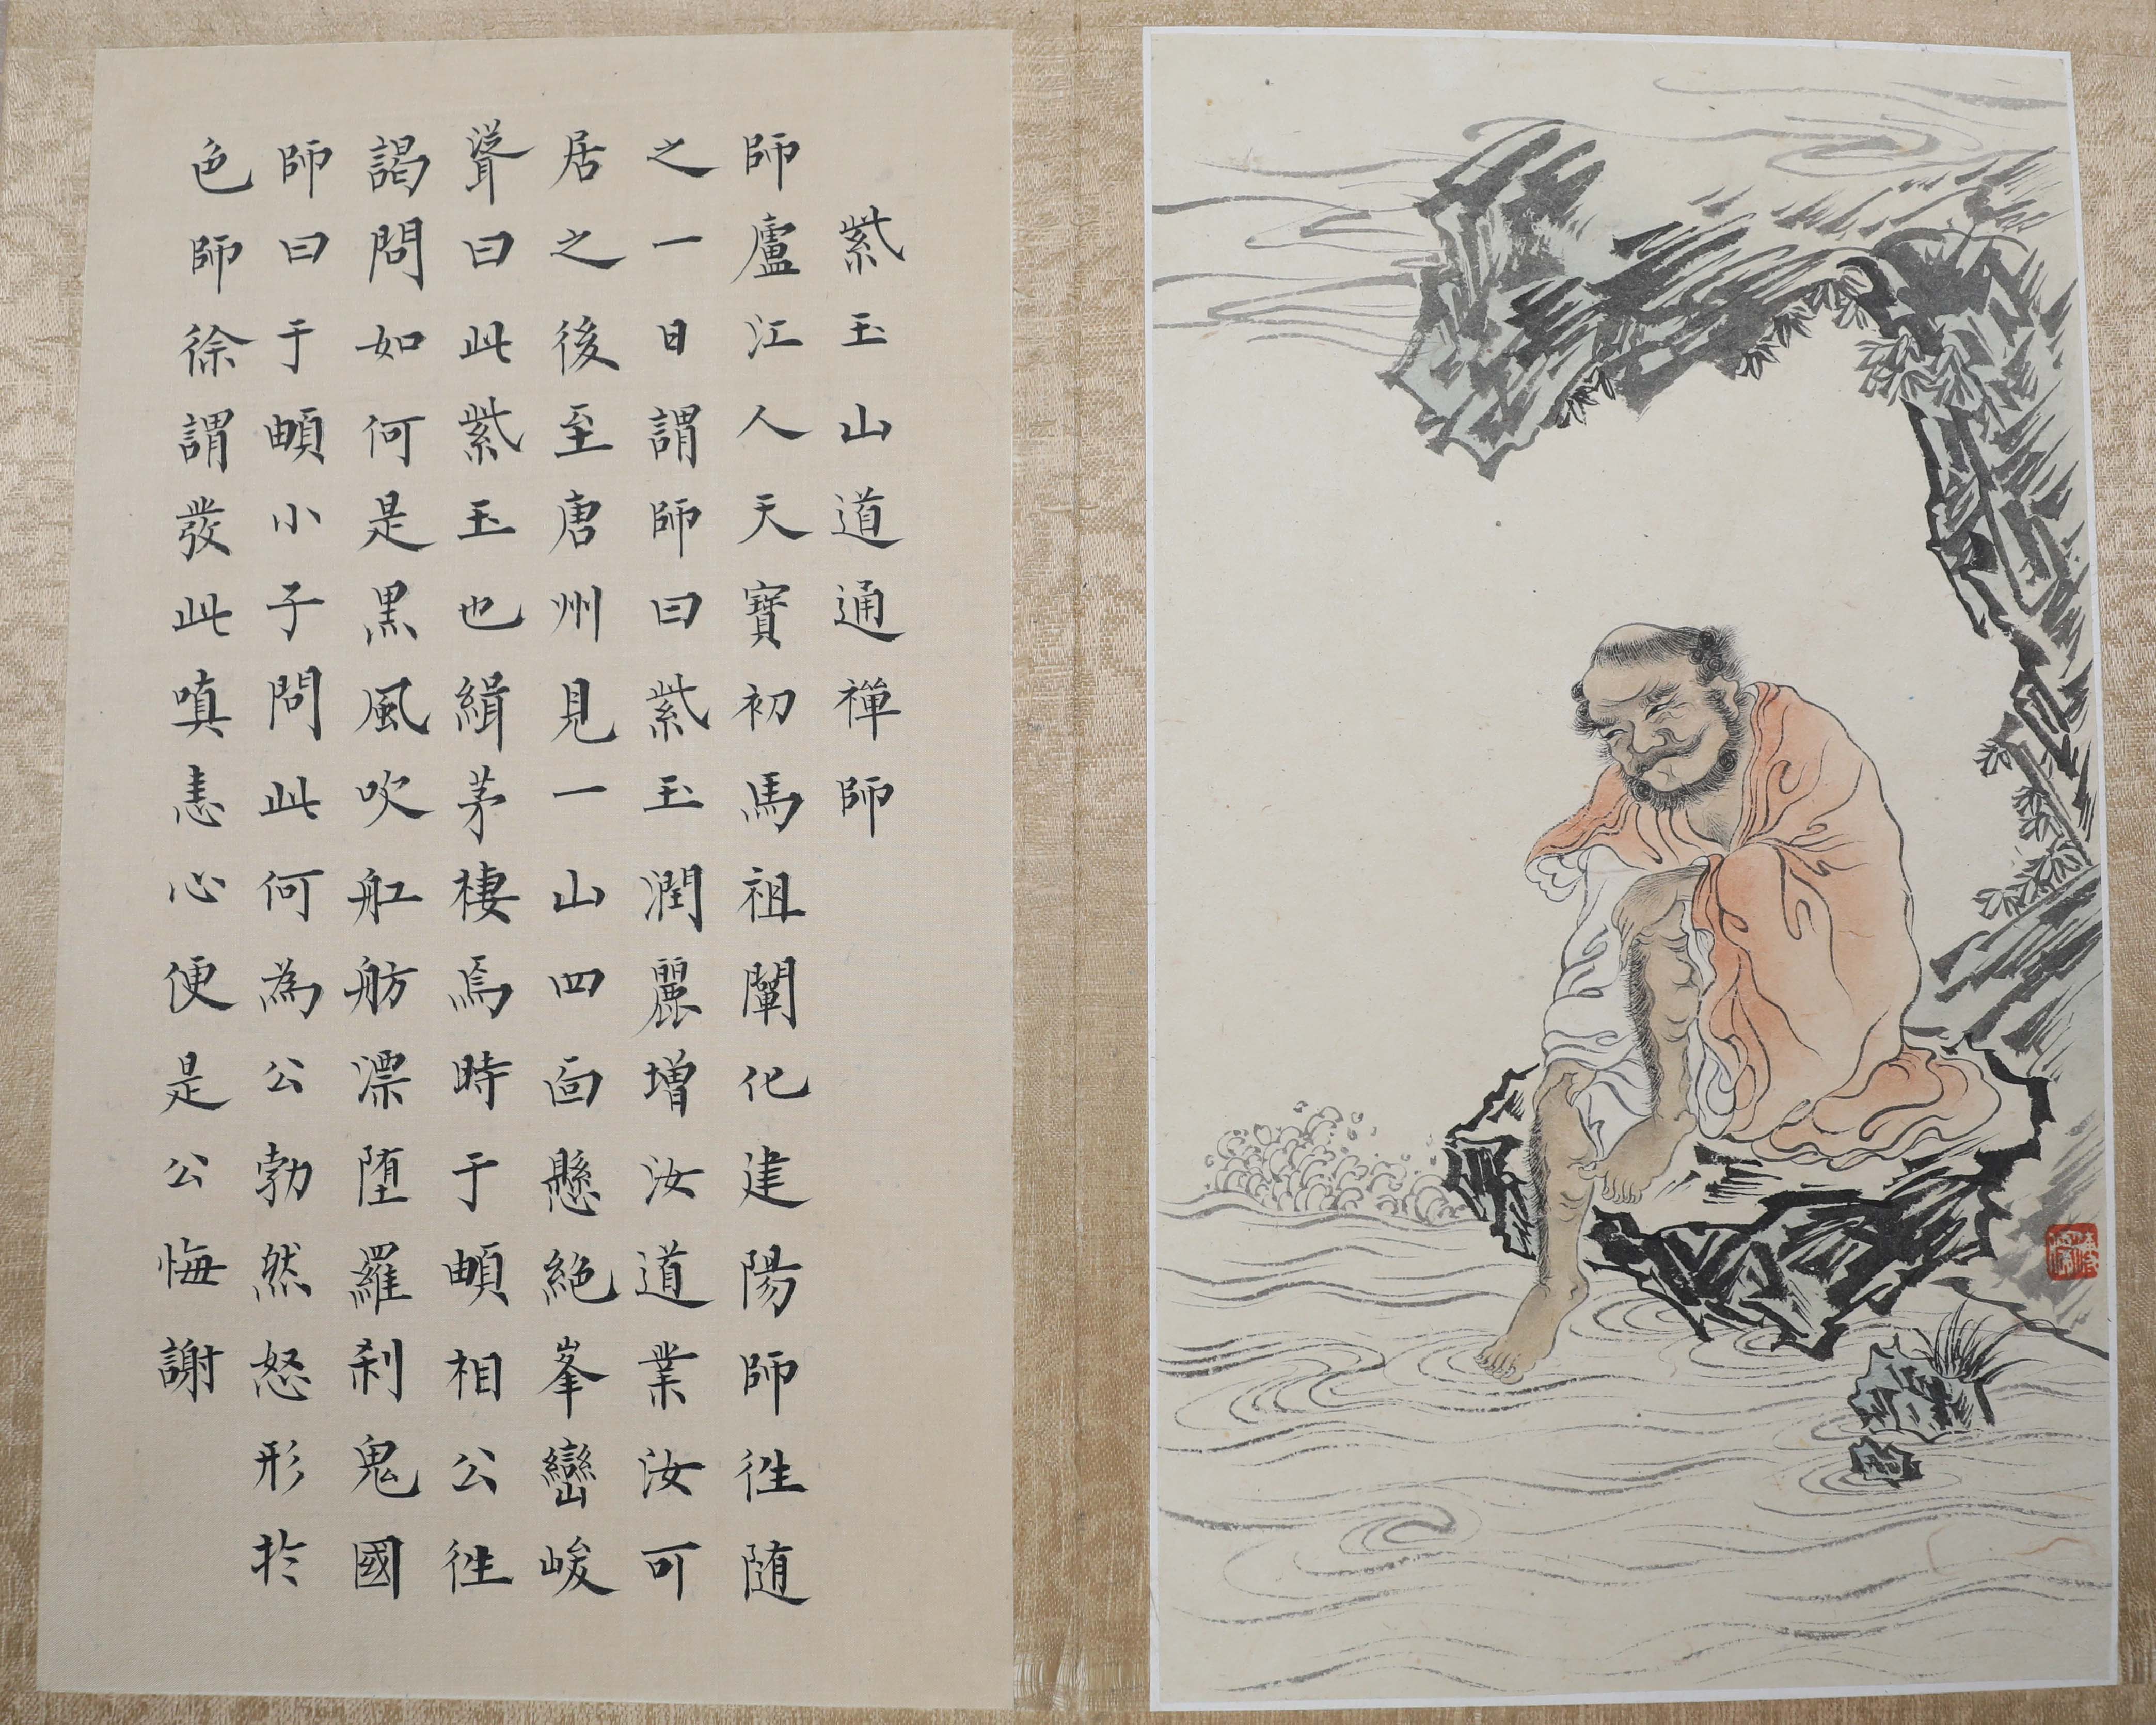 紫玉山道通禪師
師廬江人天寶初馬祖闡化建陽師徃随
之一日謂師曰紫玉潤麗增汝道業汝可
居之後至唐州見一山四面懸絶峯巒峻
聳曰此紫玉也緝茅棲焉時于頔相公徃
謁問如何是黒風吹舡舫漂堕羅刹鬼國
師曰于頔小子問此何為公勃然怒形扵
色師徐謂發此嗔恚心便是公悔謝